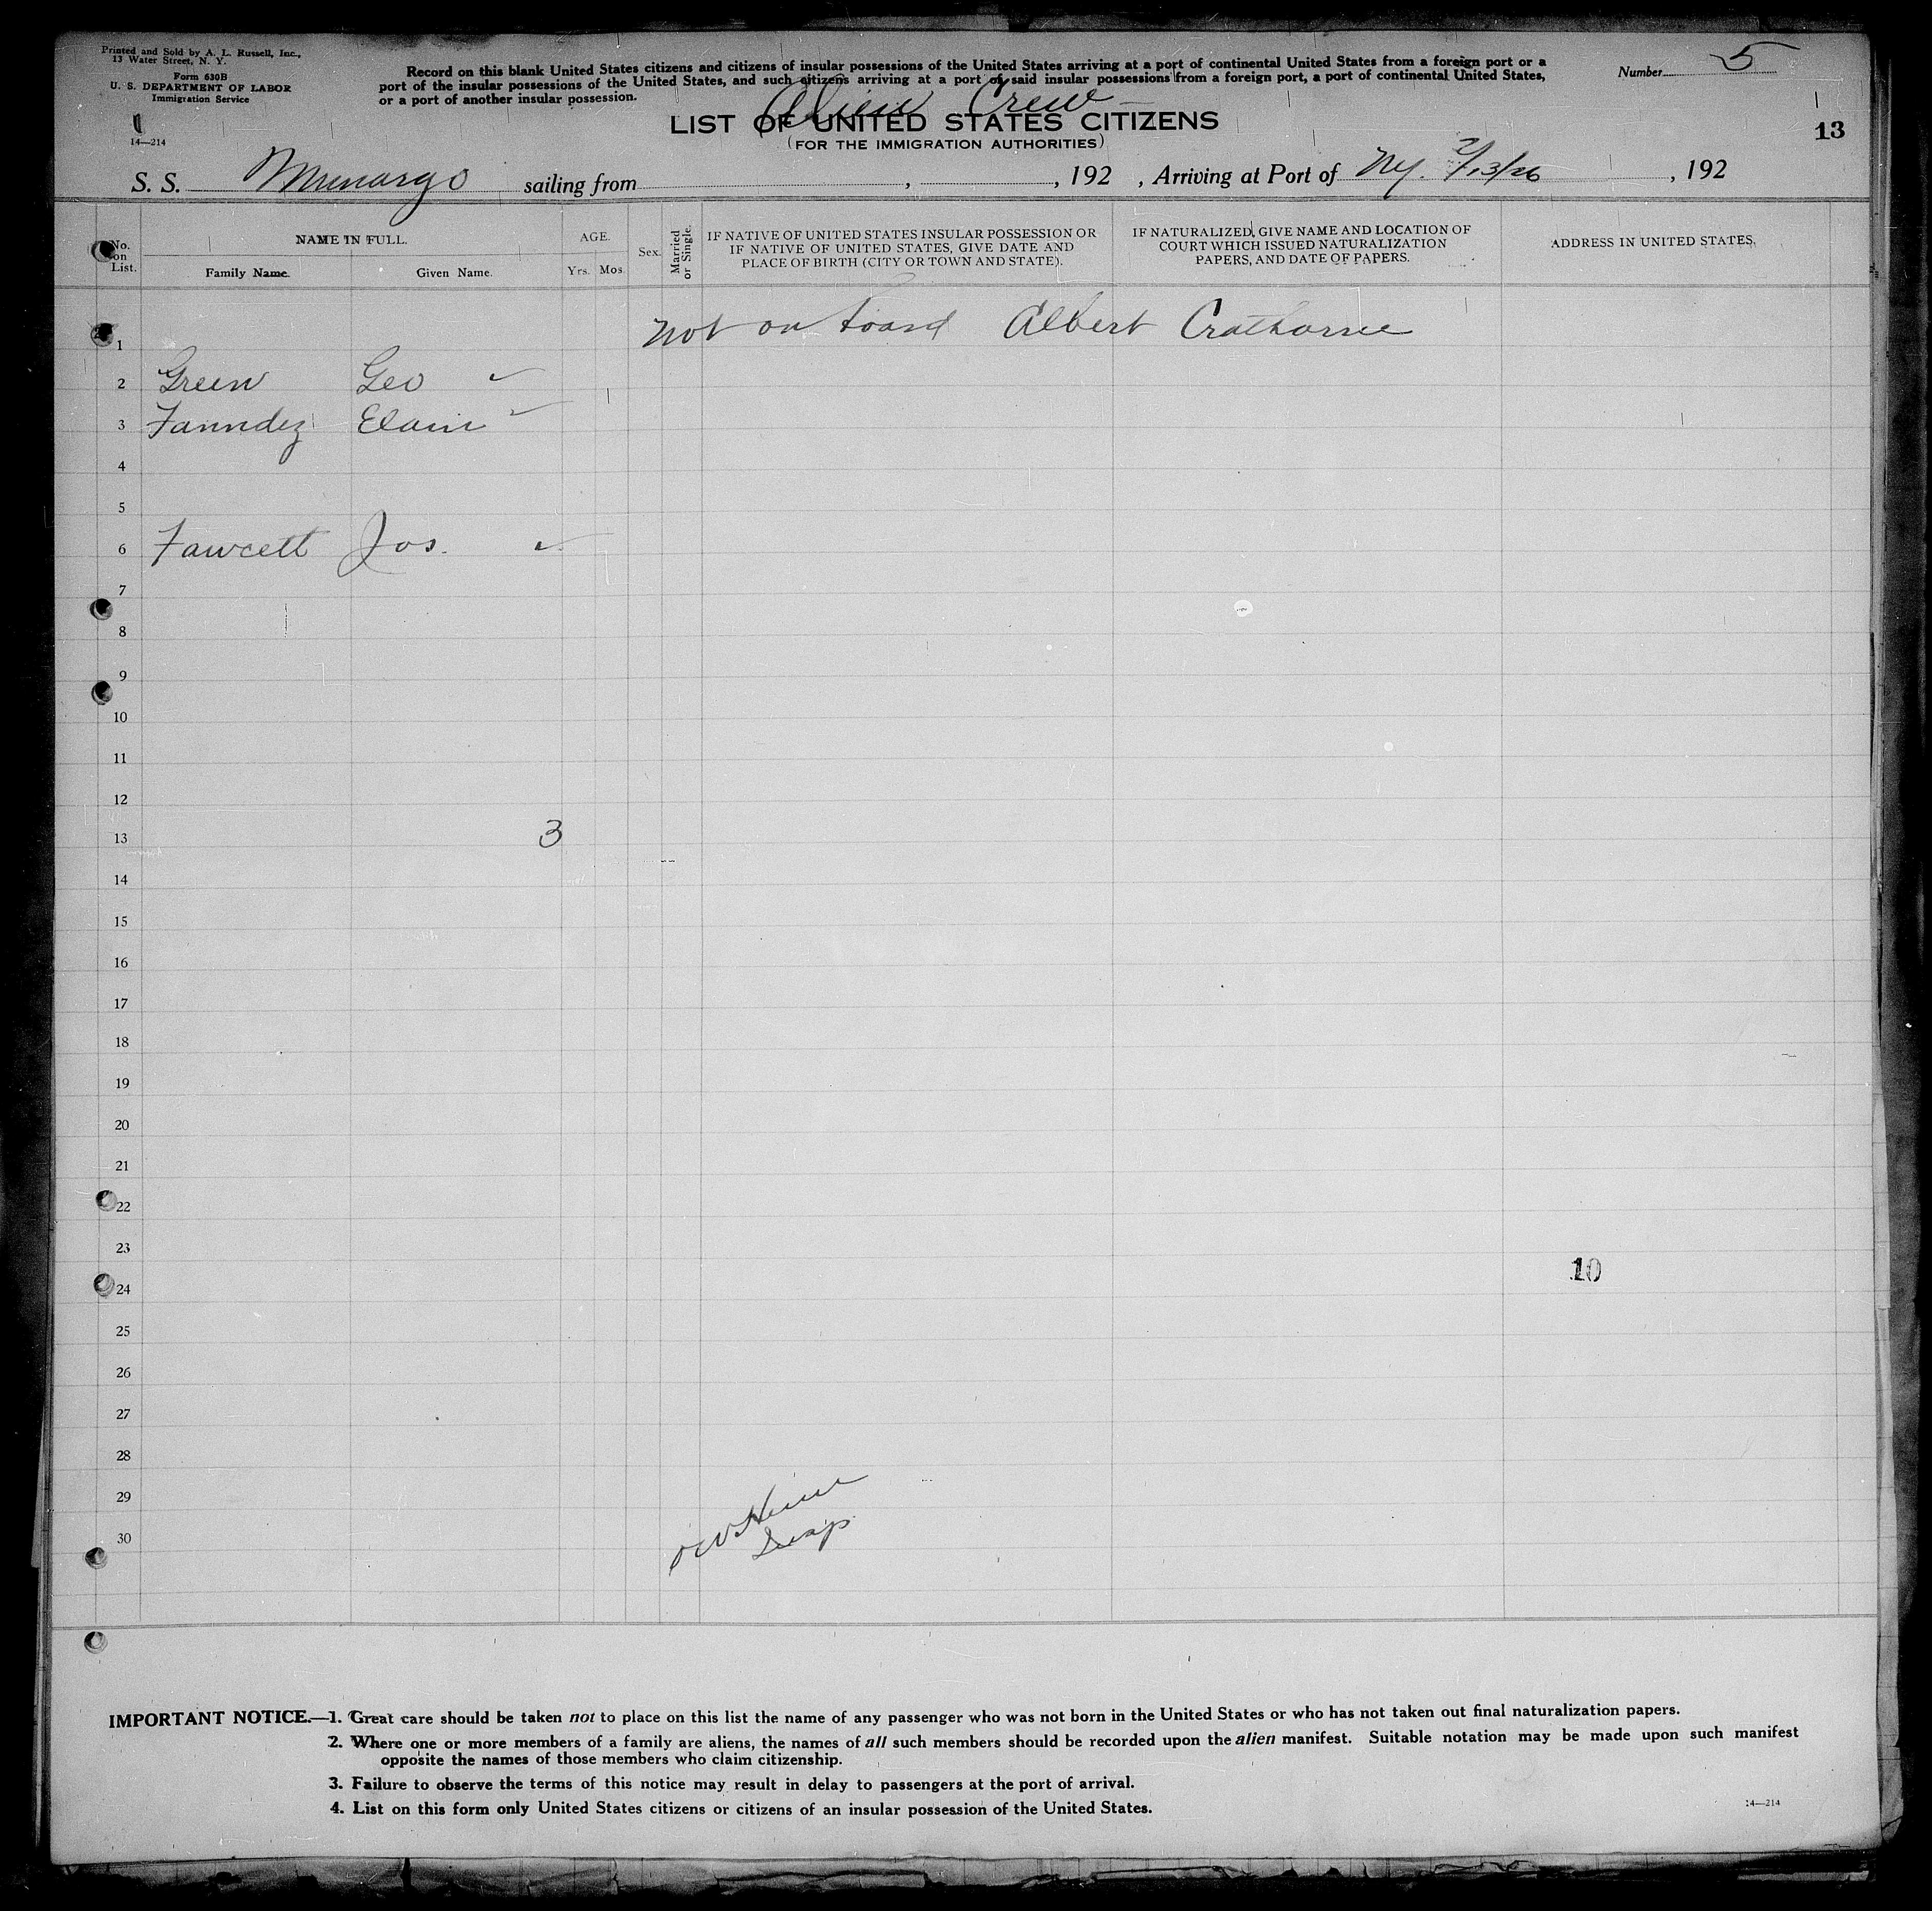 Printed and Sold by A. L. Russell, Inc.,
13 Water Street, N. Y.
Form 630B
U. S. DEPARTMENT OF LABOR
Immigration Service
14—214
Record on this blank United States citizens and citizens of insular possessions of the United States arriving at a port of continental United States from a foreign port or a
port of the insular possessions of the United States, and such citizens arriving at a port of said insular possessions from a foreign port, a port of continental United States,
or a port of another insular possession.
Number 5
Alien Crew
LIST OF UNITED STATES CITIZENS
(FOR THE IMMIGRATION AUTHORITIES)
13
S. S. Munargo sailing from , , 192 , Arriving at Port of NY. 2/13/26 , 192
No. on List.
NAME IN FULL.
Family Name. Given Name.
AGE.
Yrs. Mos.
Sex.
Married or Single.
IF NATIVE OF UNITED STATES INSULAR POSSESSION OR
IF NATIVE OF UNITED STATES, GIVE DATE AND
PLACE OF BIRTH (CITY OR TOWN AND STATE).
IF NATURALIZED, GIVE NAME AND LOCATION OF
COURT WHICH ISSUED NATURALIZATION
PAPERS, AND DATE OF PAPERS.
ADDRESS IN UNITED STATES.
1 not on board Albert Crathorne
2 Green Geo ✓
3 Fanndez Elain ✓
4
5
6 Fawcett Jos. ✓
7
8
9
10
11
12
13 3
14
15
16
17
18
19
20
21
22
23
10
24
25
26
27
28
29
30
Insp
IMPORTANT NOTICE.—1. Great care should be taken not to place on this list the name of any passenger who was not born in the United States or who has not taken out final naturalization papers.
2. Where one or more members of a family are aliens, the names of all such members should be recorded upon the alien manifest. Suitable notation may be made upon such manifest
opposite the names of those members who claim citizenship.
3. Failure to observe the terms of this notice may result in delay to passengers at the port of arrival.
4. List on this form only United States citizens or citizens of an insular possession of the United States.
14—214